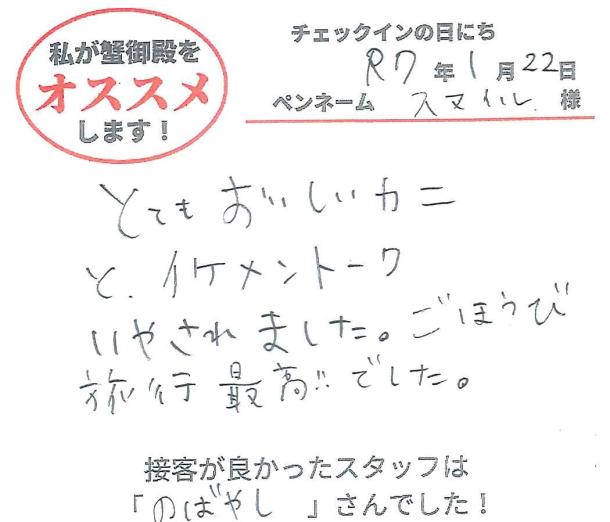 私が蟹御殿を
オススメ
します！
チェックインの日にち
R7年1月22日
ペンネーム スマイル. 様
とてもおいしいカニ
と、イケメントーク
いやされました。ごほうび
旅行最高!!でした。
接客が良かったスタッフは
「のばやし」さんでした！